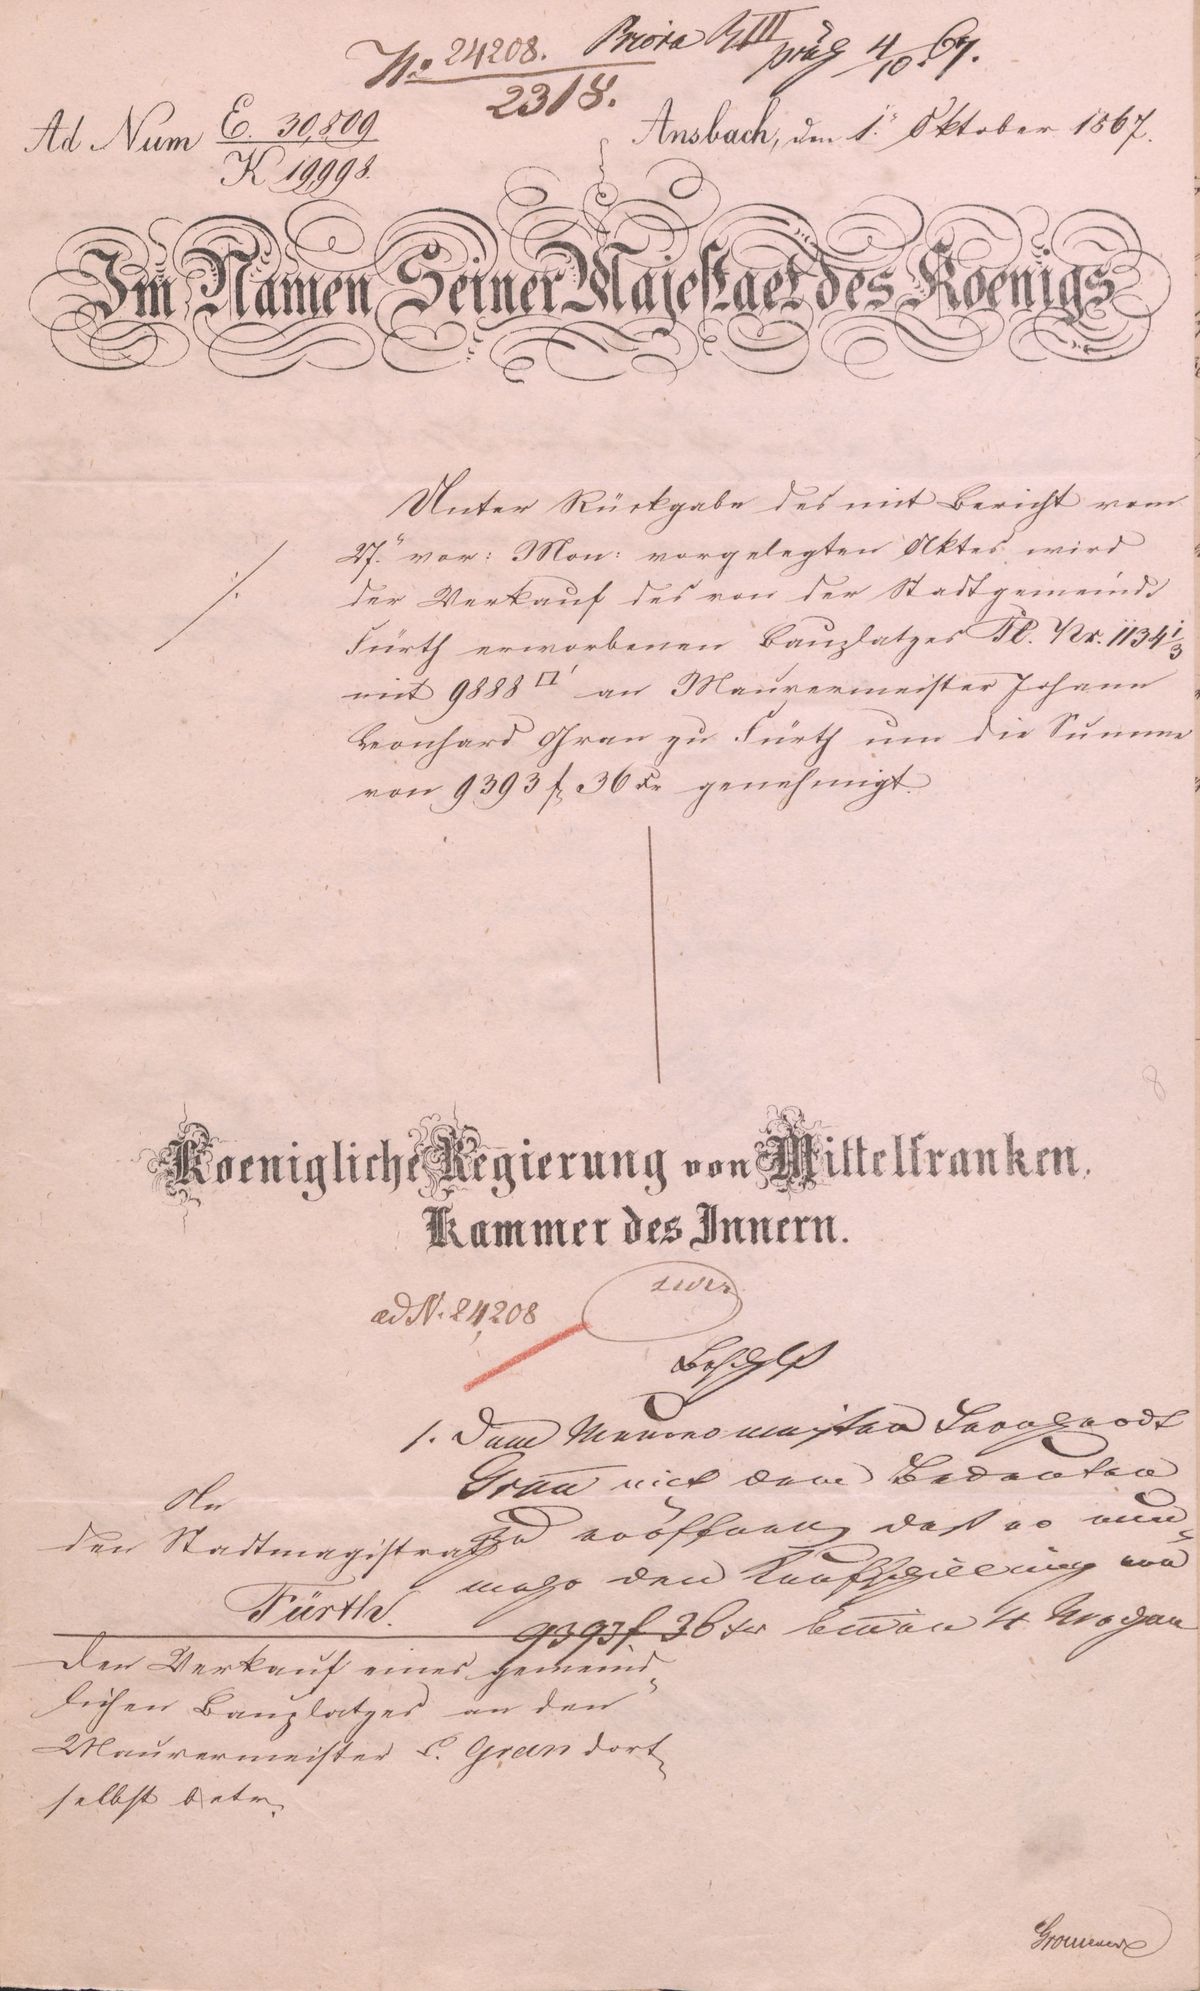 No 24208. Priora 
präs 4/10. 67.
2318.
Ad Num E. 30,809
K 19,998.
Ansbach, den 1. Oktober 1867.
Im Namen Seiner Majestaet des Koenigs
Unter Rückgabe des mit Bericht vom
27. vor: Mon: vorgelegten Aktes wird
der Verkauf des von der Stadtgemeinde
Fürth erworbenen Bauplatzes Pl. Nr. 1134 1/3
mit 9888 □' an Maurermeister Johann
Leonhard Gran zu Fürth um die Summe
von 9393 f 36 Xr genehmigt.
8
Koenigliche Regierung von Mittelfranken,
Kammer des Innern.
ad N. 24,208
Beschluß
1. Dem Maurermeister Leonhardt
Gran mit dem Bedeuten
zu eröffnen, daß er nun-
mehr den Kaufschilling von
9393 f 36 xr binnen 4 Wochen
An
den Stadtmagistrat
Fürth.
Den Verkauf eines gemeind-
lichen Bauplatzes an den
Maurermeister L. Gran dort-
selbst betr.